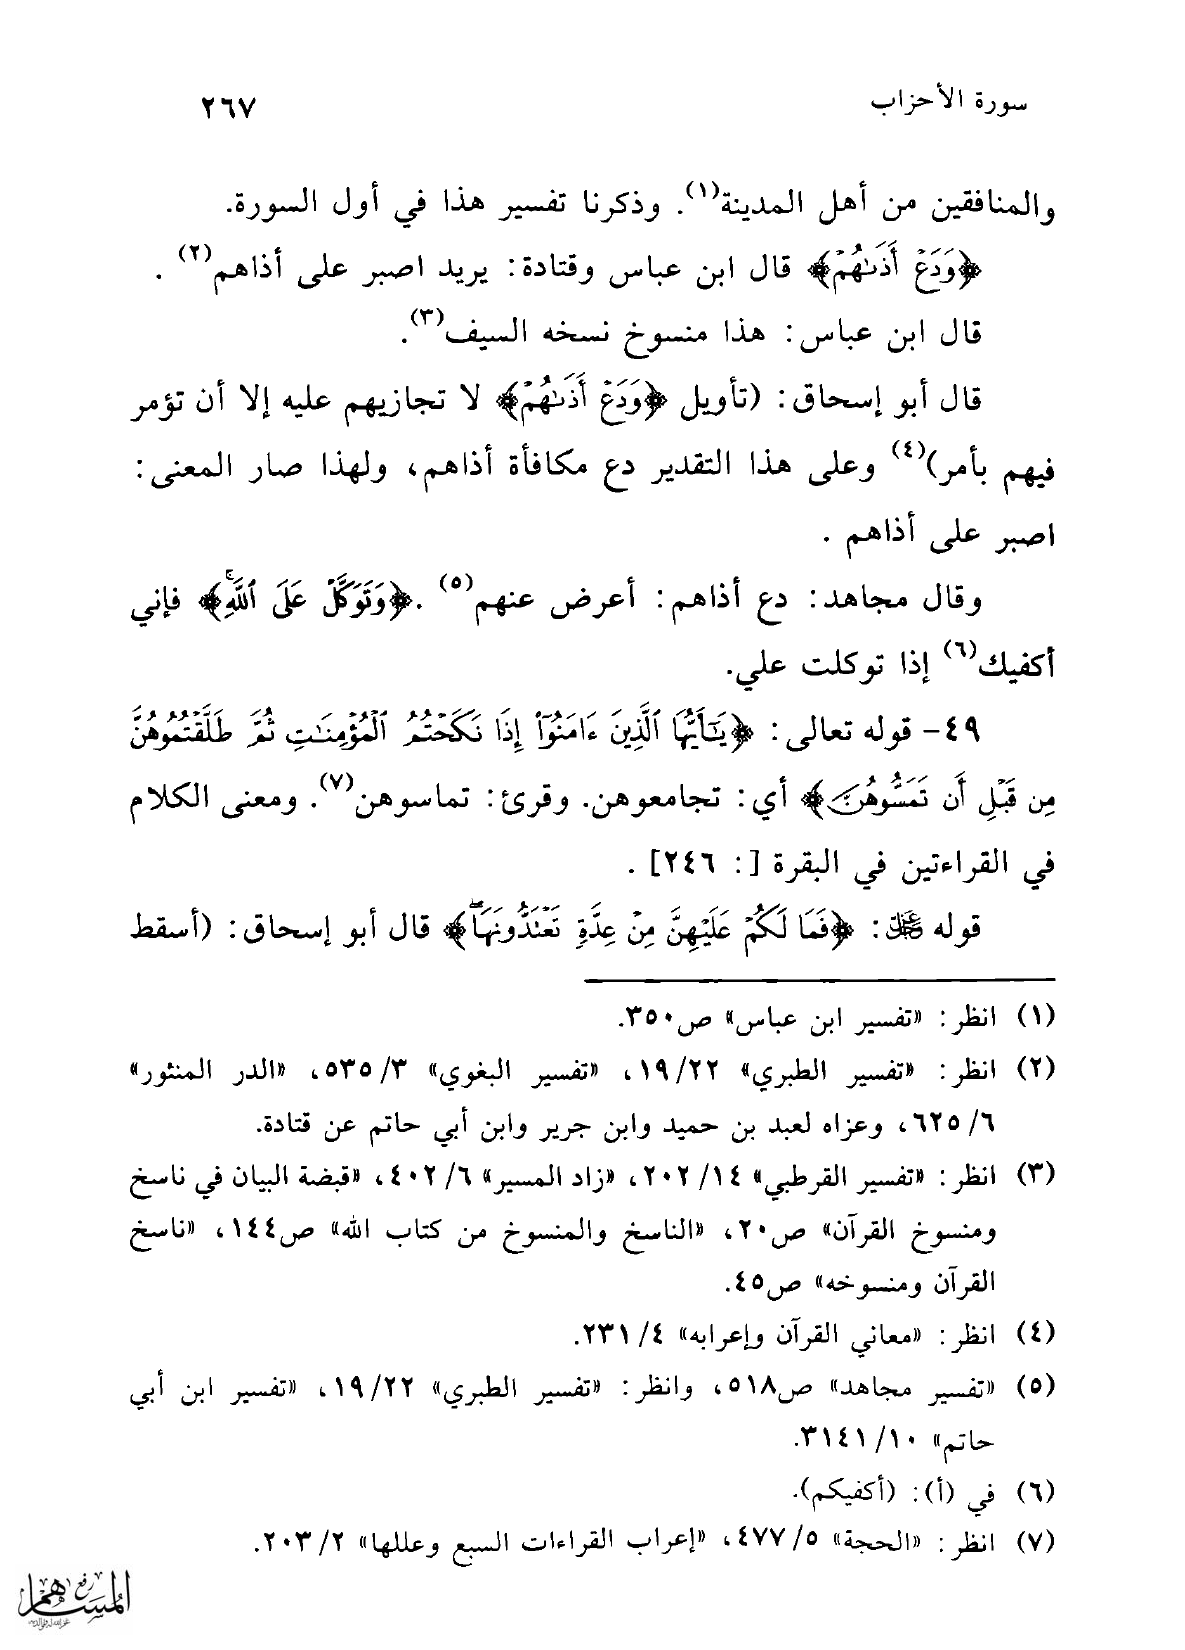 سورة الأحزاب
٢٦٧
والمنافقين من أهل المدينة(١). وذكرنا تفسير هذا في أول السورة.
﴿وَدَعْ أَذَىٰهُمْ﴾ قال ابن عباس وقتادة: يريد اصبر على أذاهم(٢) .
قال ابن عباس: هذا منسوخ نسخه السيف(٣).
قال أبو إسحاق: (تأويل ﴿وَدَعْ أَذَىٰهُمْ﴾ لا تجازيهم عليه إلا أن تؤمر
فيهم بأمر)(٤) وعلى هذا التقدير دع مكافأة أذاهم، ولهذا صار المعنى:
اصبر على أذاهم .
وقال مجاهد: دع أذاهم: أعرض عنهم(٥) .﴿وَتَوَكَّلْ عَلَى ٱللَّهِۚ﴾ فإني
أكفيك(٦) إذا توكلت علي.
٤٩- قوله تعالى: ﴿يَٰٓأَيُّهَا ٱلَّذِينَ ءَامَنُوٓاْ إِذَا نَكَحْتُمُ ٱلْمُؤْمِنَٰتِ ثُمَّ طَلَّقْتُمُوهُنَّ
مِن قَبْلِ أَن تَمَسُّوهُنَّ﴾ أي: تجامعوهن. وقرئ: تماسوهن(٧). ومعنى الكلام
في القراءتين في البقرة [: ٢٤٦] .
قوله ﷿: ﴿فَمَا لَكُمْ عَلَيْهِنَّ مِنْ عِدَّةٍ تَعْتَدُّونَهَاۖ﴾ قال أبو إسحاق: (أسقط
(١) انظر: «تفسير ابن عباس» ص٣٥٠.
(٢) انظر: «تفسير الطبري» ١٩/٢٢، «تفسير البغوي» ٥٣٥/٣، «الدر المنثور»
٦٢٥/٦، وعزاه لعبد بن حميد وابن جرير وابن أبي حاتم عن قتادة.
(٣) انظر: «تفسير القرطبي» ٢٠٢/١٤، «زاد المسير» ٤٠٢/٦، «قبضة البيان في ناسخ
ومنسوخ القرآن» ص٢٠، «الناسخ والمنسوخ من كتاب الله» ص١٤٤، «ناسخ
القرآن ومنسوخه» ص٤٥.
(٤) انظر: «معاني القرآن وإعرابه» ٢٣١/٤.
(٥) «تفسير مجاهد» ص٥١٨، وانظر: «تفسير الطبري» ١٩/٢٢، «تفسير ابن أبي
حاتم» ٣١٤١/١٠.
(٦) في (أ): (أكفيكم).
(٧) انظر: «الحجة» ٤٧٧/٥، «إعراب القراءات السبع وعللها» ٢٠٣/٢.